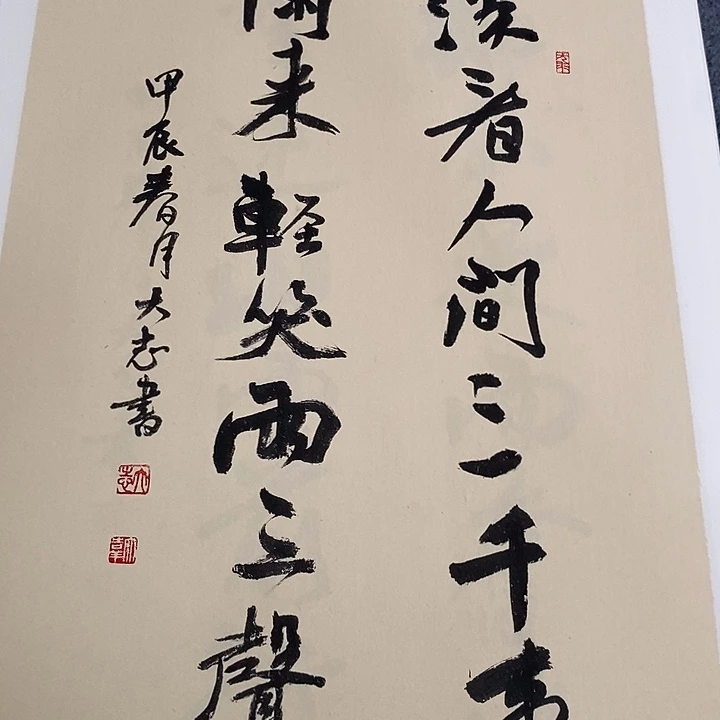 淡看人间三千事
闲来轻笑兩三聲
甲辰春月大志書